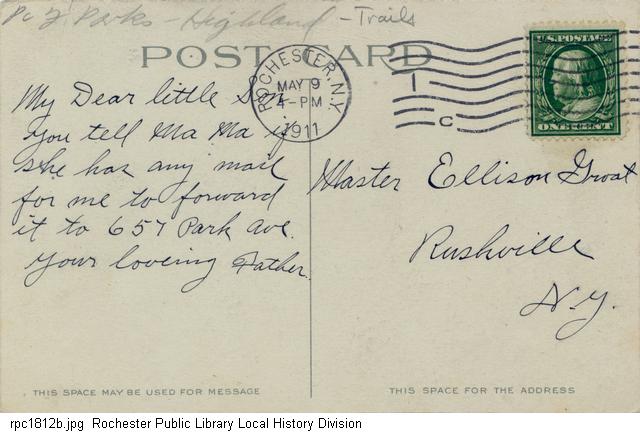 Parks - Highland - Trails
POST CARD
ROCHESTER, N.Y.
MAY 9
4-PM
1911
1
C
U.S. POSTAGE
ONE CENT
My Dear little Son
you tell Ma Ma if
she has any mail
for me to forward
it to 657 Park Ave.
Your loveing Father.
Master Ellison Groat
Rushville
N.Y.
THIS SPACE MAY BE USED FOR MESSAGE
THIS SPACE FOR THE ADDRESS
rpc1812b.jpg Rochester Public Library Local History Division